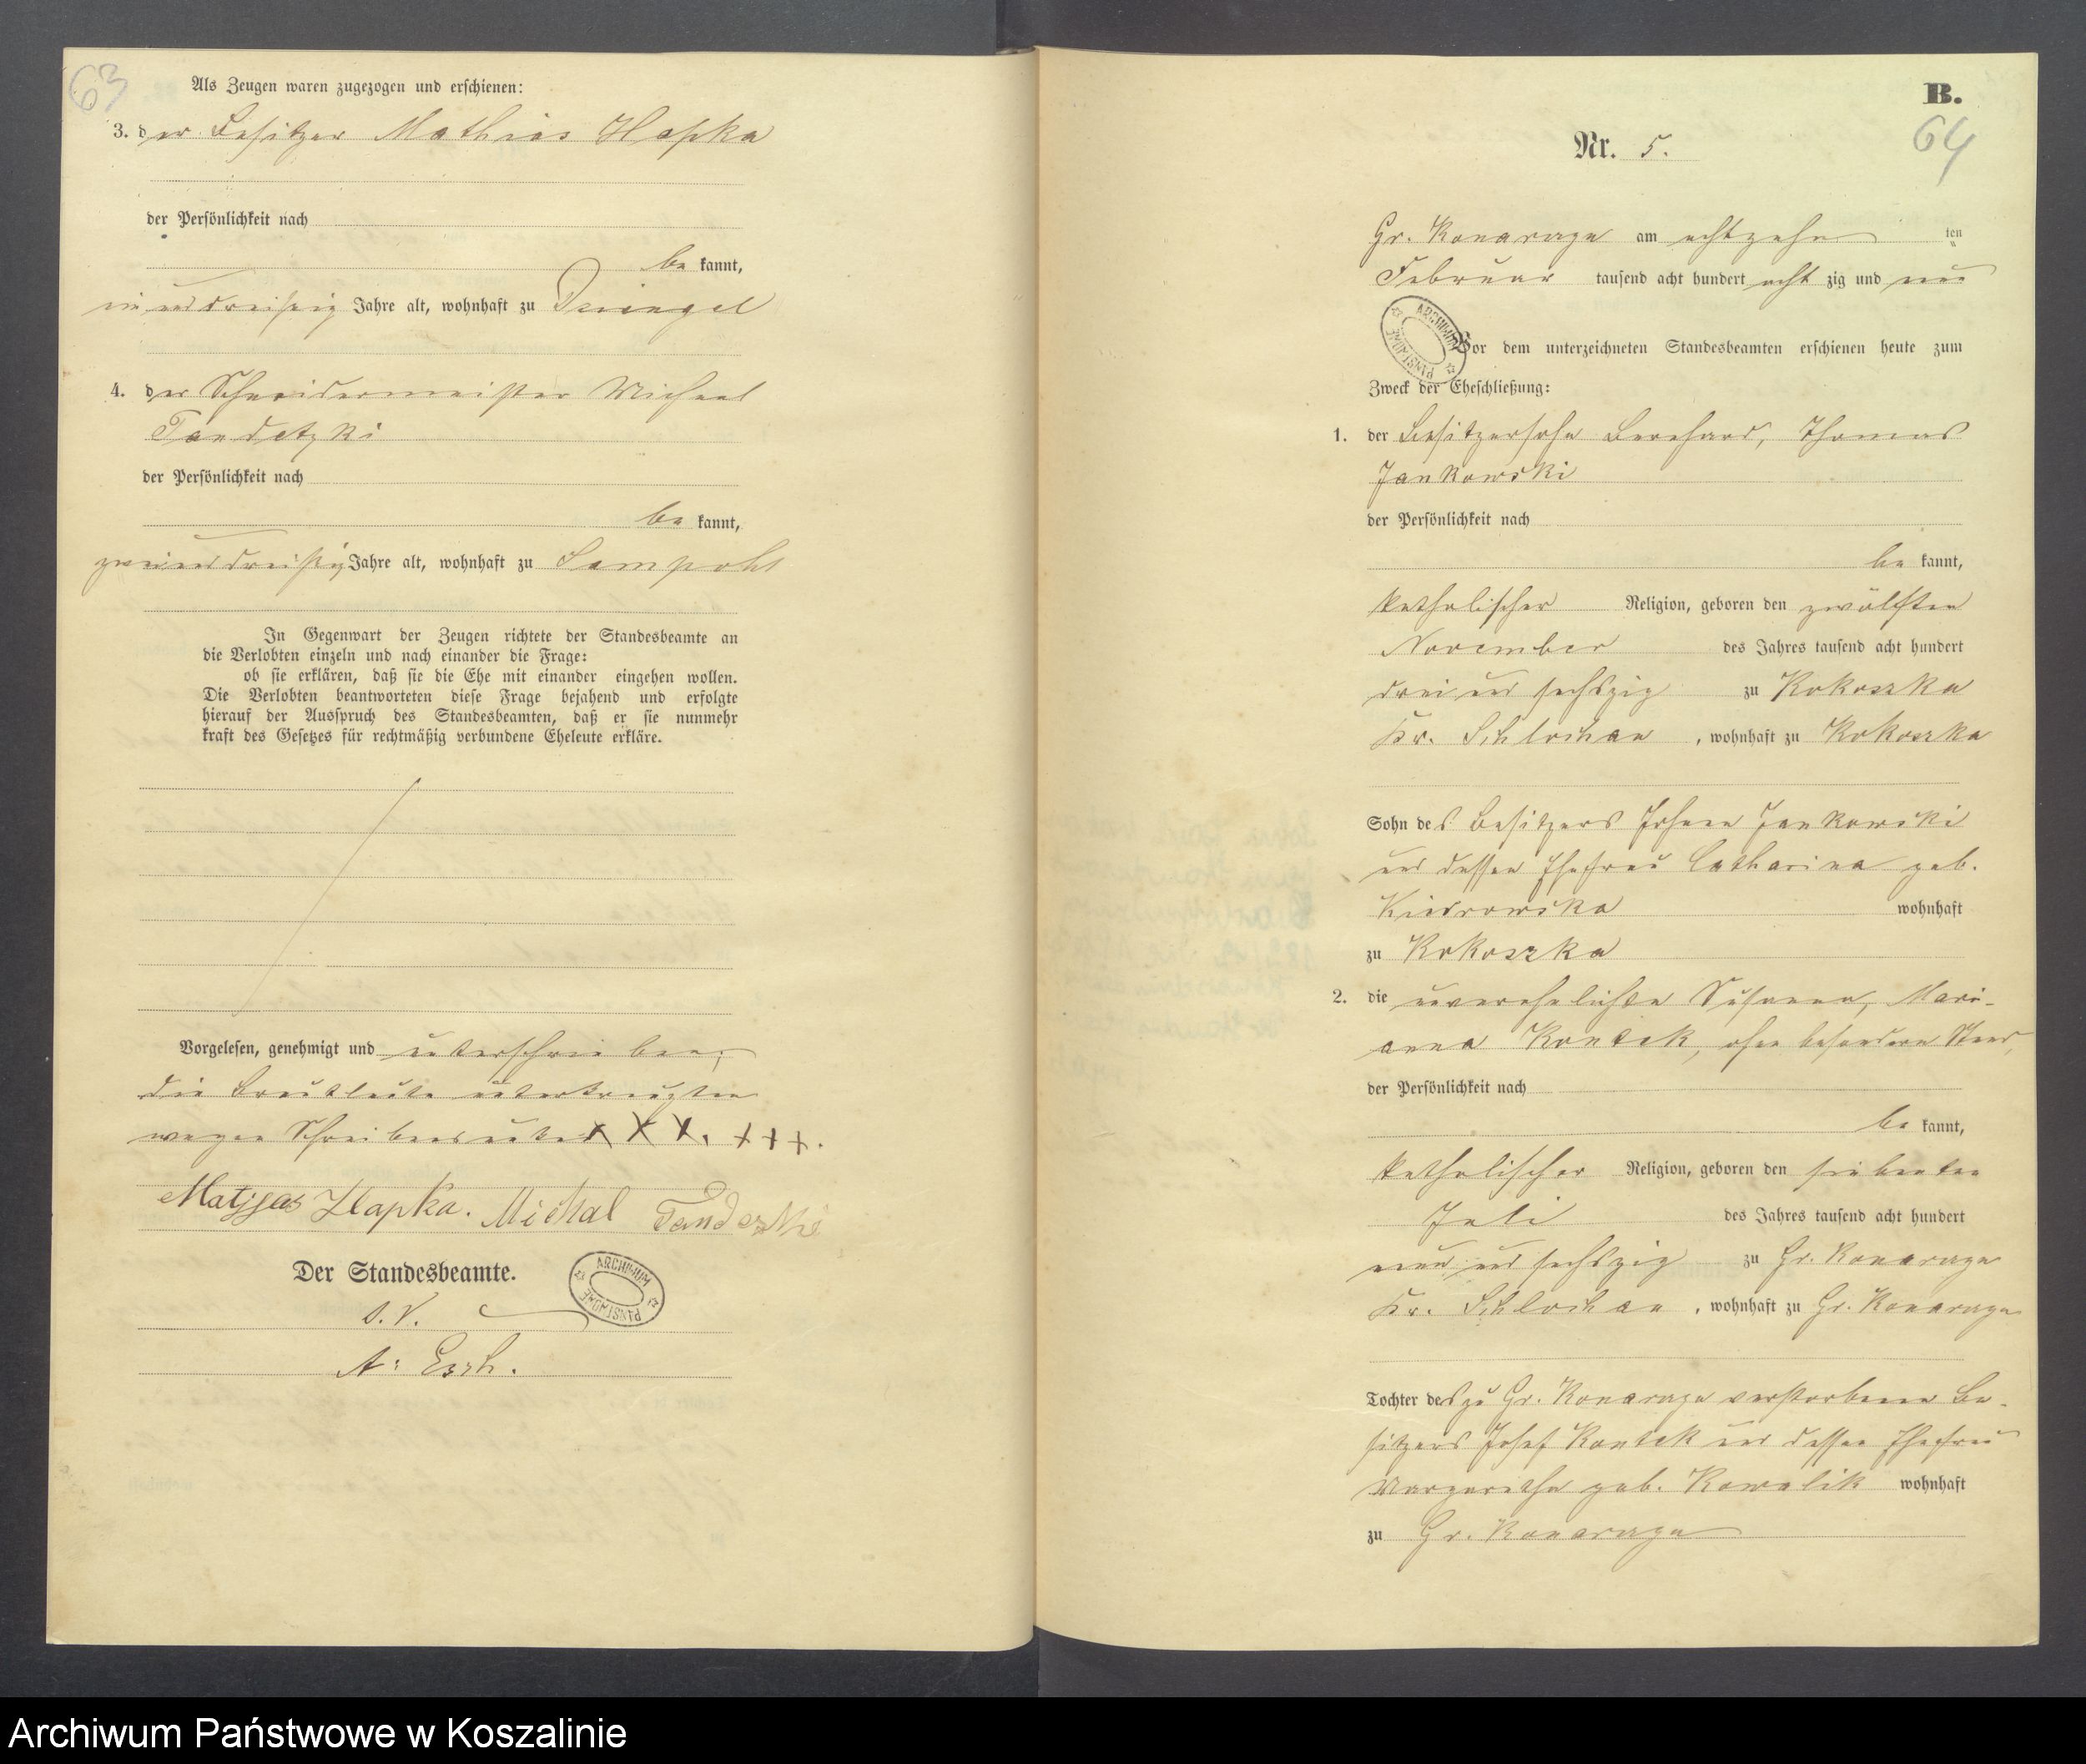 63
Als Zeugen waren zugezogen und erschienen:
3. der Besitzer Mathias Hapka
der Persönlichkeit nach
be kannt,
ein und dreißig Jahre alt, wohnhaft zu Dziengel
4. der Schneidermeister Michael
Tandetzki
der Persönlichkeit nach
be kannt,
zwei und dreißig Jahre alt, wohnhaft zu Sampohl
In Gegenwart der Zeugen richtete der Standesbeamte an
die Verlobten einzeln und nach einander die Frage:
ob sie erklären, daß sie die Ehe mit einander eingehen wollen.
Die Verlobten beantworteten diese Frage bejahend und erfolgte
hierauf der Ausspruch des Standesbeamten, daß er sie nunmehr
kraft des Gesetzes für rechtmäßig verbundene Eheleute erkläre.
Vorgelesen, genehmigt und unterschrieben,
die Brautleute unterkreuzten
wegen Schreibensunk. XXX. +++.
Matyjas Hapka. Michal Tanderski
Der Standesbeamte.
ARCHIWUM PAŃSTWOWE
I.V.
A: Esch.
B.
64
Nr. 5.
Gr. Konarczyn am achtzehn ten
Februar tausend acht hundert acht zig und neun
ARCHIWUM PAŃSTWOWE
Vor dem unterzeichneten Standesbeamten erschienen heute zum
Zweck der Eheschließung:
1. der Besitzersohn Bernhard, Thomas
Jankowski
der Persönlichkeit nach
be kannt,
katholischer Religion, geboren den zwölften
November des Jahres tausend acht hundert
drei und sechszig zu Kokoszka
Kr. Schlochau, wohnhaft zu Kokoszka
Sohn des Besitzers Johann Jankowski
und dessen Ehefrau Catharina geb.
Kiedrowska wohnhaft
zu Kokoszka
2. die unverehelichte Susanna, Mari-
anna Kontek, ohne besondern Stand,
der Persönlichkeit nach
be kannt,
katholischer Religion, geboren den siebenten
Juli des Jahres tausend acht hundert
neun und sechszig zu Gr. Konarczyn
Kr. Schlochau, wohnhaft zu Gr. Konarczyn
Tochter des zu Gr. Konarczyn verstorbenen Be-
sitzers Josef Kontek und dessen Ehefrau
Margaretha geb. Kowalik wohnhaft
zu Gr. Konarczyn
Archiwum Państwowe w Koszalinie